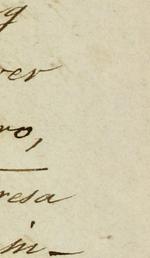 g
ver
ro,
resa
in-